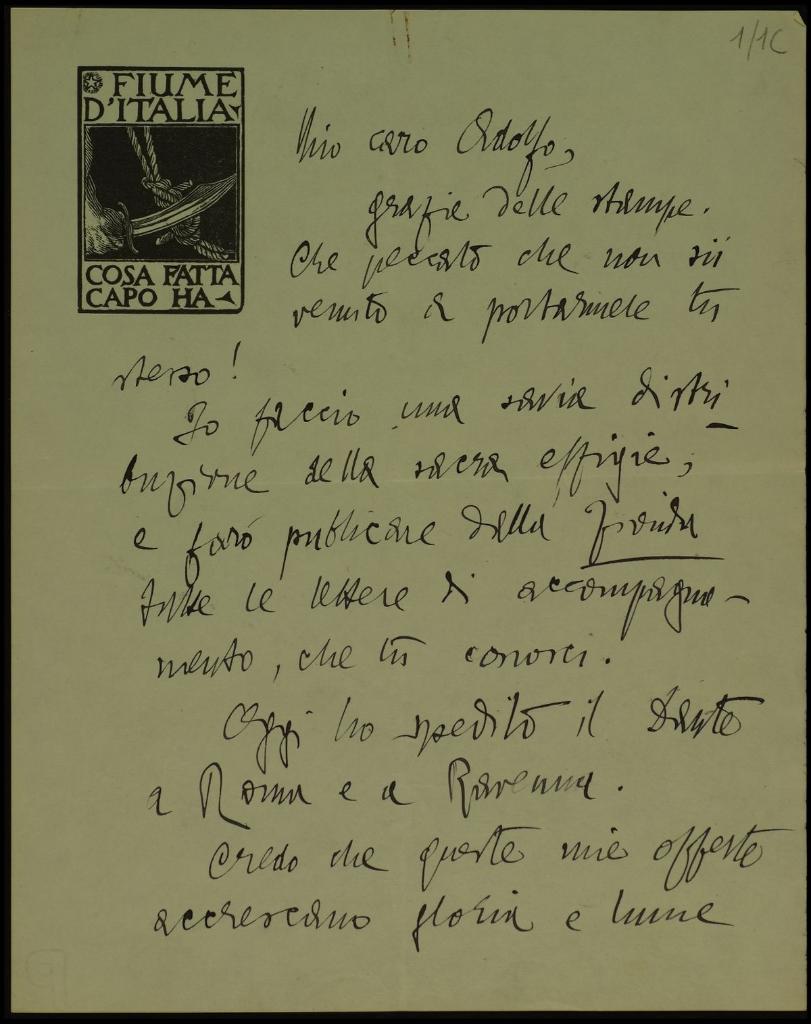 1/1C
FIUME
D'ITALIA
COSA FATTA
CAPO HA
Mio caro Adolfo,
grazie delle stampe.
Che peccato che non sii
venuto a portarmele tu
stesso!
Io faccio una savia distri
buzione della sacra effigie,
e farò publicare dalla
tutte le lettere di accompagna-
mento, che tu conosci.
Oggi ho spedito il Dante
a Roma e a Ravenna.
Credo che queste mie offerte
accrescano gloria e lume